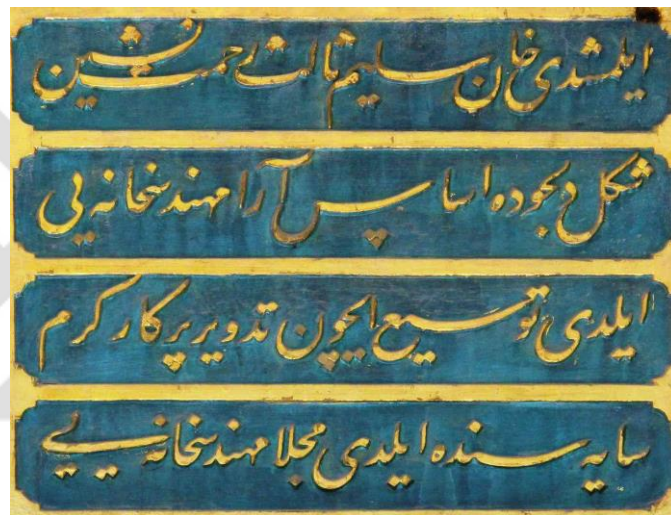 ایلمشدی خان سلیم ثالث جنت نشین
شکل دلجوده اساس آرا مهندسخانه یی
ایلدی توسیع ایچون تدویر پرکار کرم
سایه سنده ایلدی مجلا مهندسخانه یی